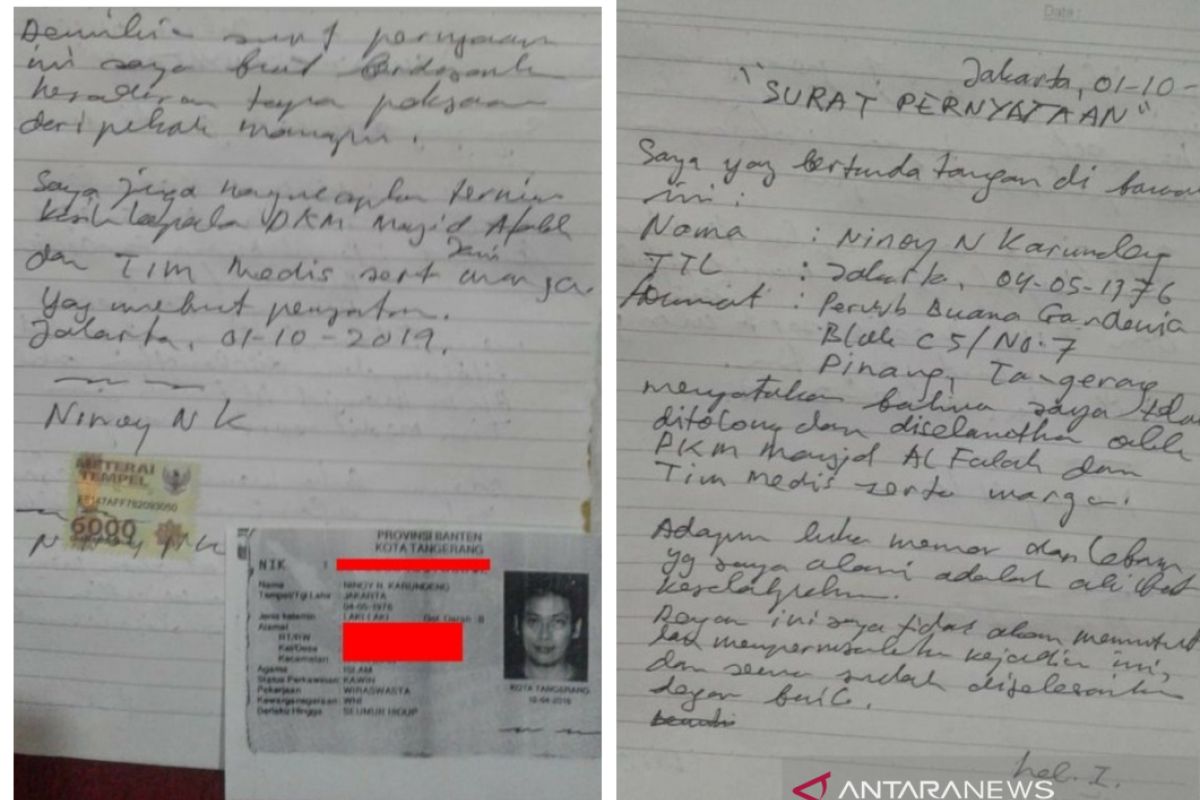 Demikian surat pernyaan
ini saya buat berdasarkan
kesadaran tanpa paksaan
dari pihak manapun.
Saya juga mengucapkan terima
kasih kepada DKM Masjid Afalah
Jami
dan Tim Medis sert warga
yg
Jakarta, 01-10-2019.
Ninoy N K
METERAI
TEMPEL
6000
Ninoy NK
PROVINSI BANTEN
KOTA TANGERANG
NIK :
Nama : NINOY N. KARUNDENG
Tempat/Tgl Lahir : JAKARTA
04-05-1976
Jenis kelamin : LAKI-LAKI Gol. Darah : B
Alamat
RT/RW
Kel/Desa
Kecamatan
Agama : ISLAM
Status Perkawinan : KAWIN
Pekerjaan : WIRASWASTA
Kewarganegaraan : WNI
Berlaku Hingga : SEUMUR HIDUP
KOTA TANGERANG
Date :
Jakarta, 01-10-
"SURAT PERNYATAAN"
Saya yg bertanda tangan di bawa
ini :
Nama : Ninoy N Karundeng
TTL : Jakarta, 04-05-1976
Alamat : Buana Gardenia
Blok C5/No.7
Pinang, Tangerang
menyatakan bahwa saya tela
ditolong dan diselamatkan oleh
DKM Masjid Al Falah dan
Tim Medis serta warga.
Adapun luka memar dan lebam
yg saya alami adalah akibat
kesalahpaham.
Dengan ini saya tidak akan menuntut
dan mempermasalahkan kejadian ini,
dan semua sudah diselesaikan
dengan baik.
hal. I.
ANTARANEWS